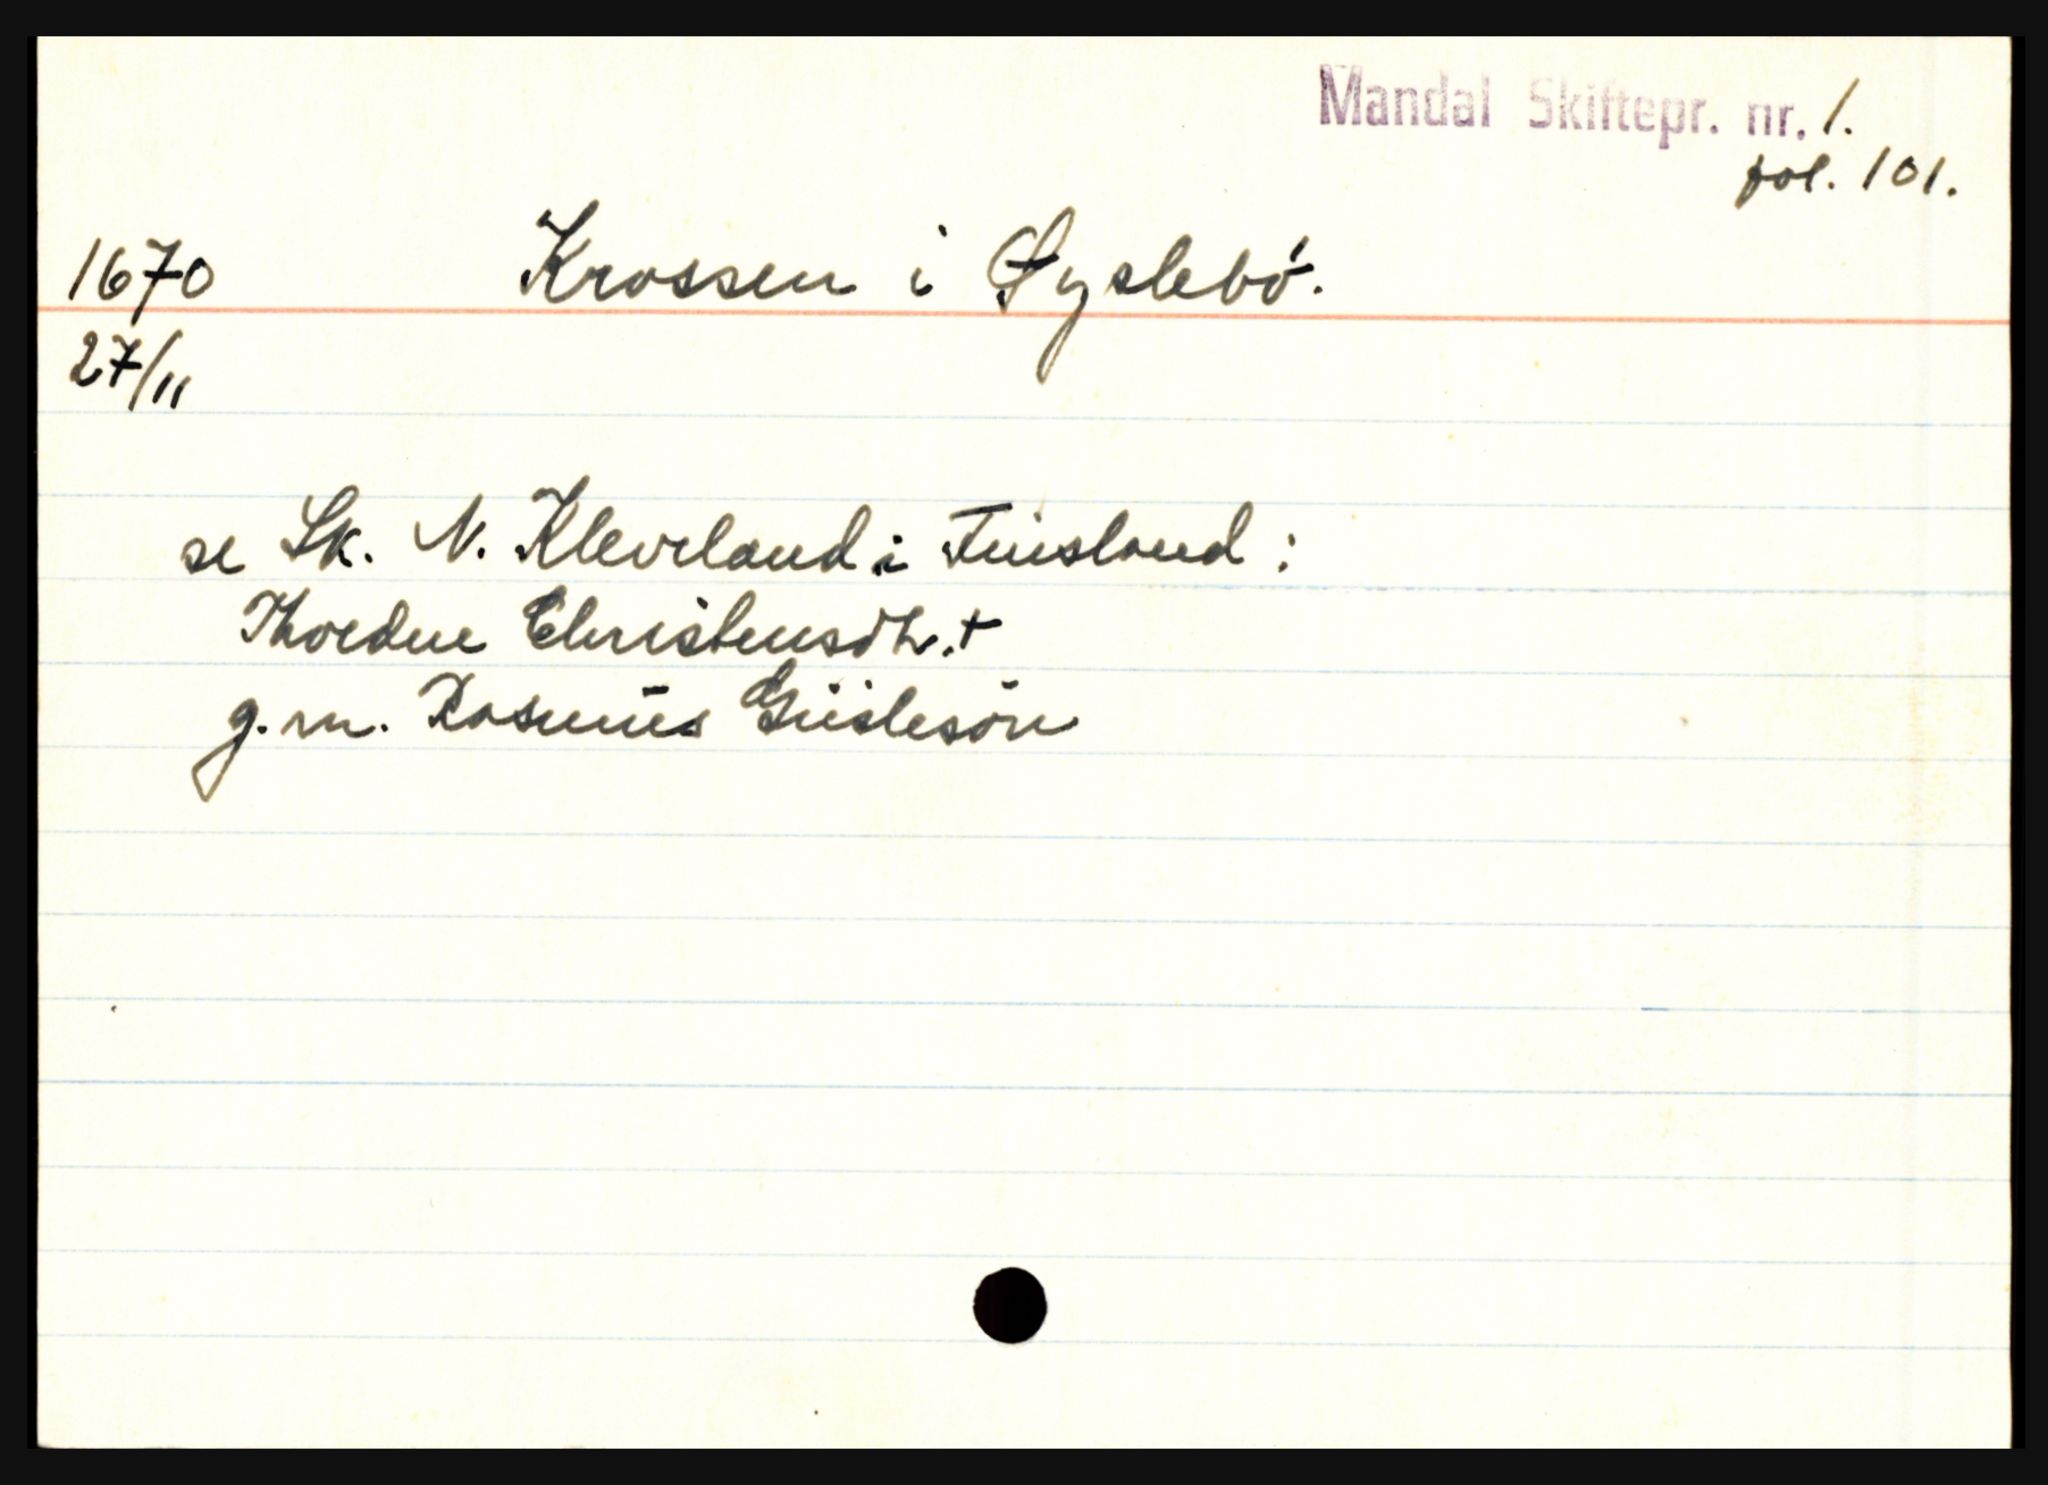 Mandal Skiftepr. nr. 1.
fol. 101.
1670 Krossen i Øyslebø.
27/11
se Sk. N. Kleveland i Finsland:
Thordue Christensdtr. +
g.m. Rasmus Giislesön